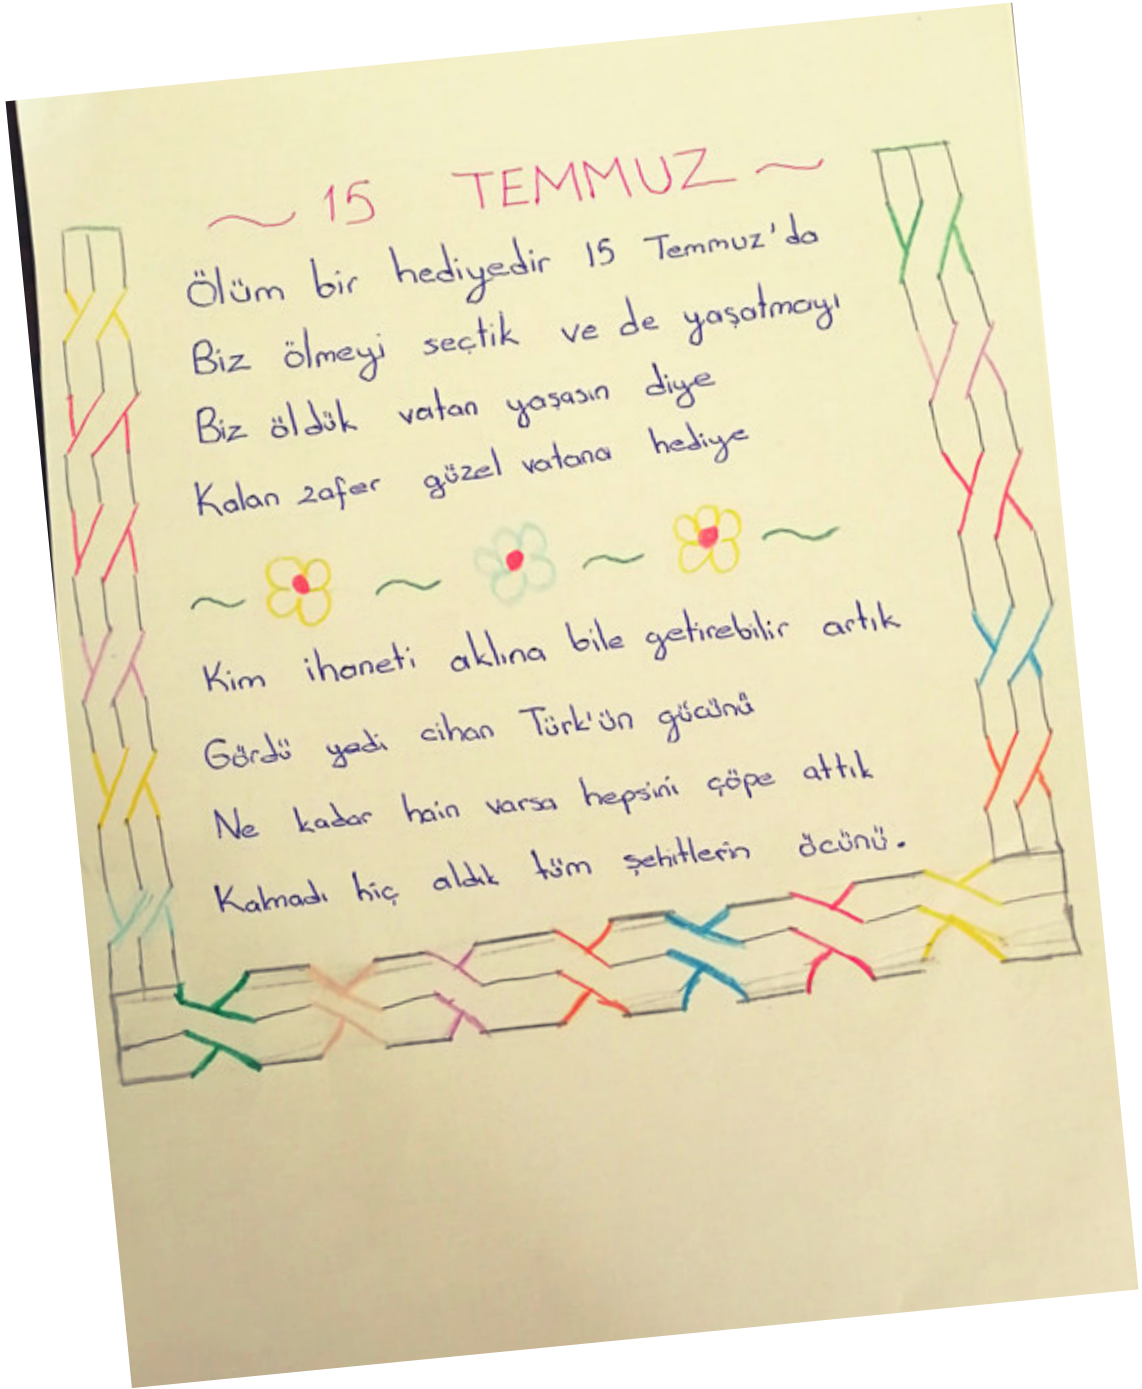 15 TEMMUZ
Ölüm bir hediyedir 15 Temmuz'da
Biz ölmeyi seçtik ve de yaşatmayı
Biz öldük vatan yaşasın diye
Kalan zafer güzel vatana hediye
Kim ihaneti aklına bile getirebilir artık
Gördü yedi cihan Türk'ün gücünü
Ne kadar hain varsa hepsini çöpe attık
Kalmadı hiç aldık tüm şehitlerin öcünü.